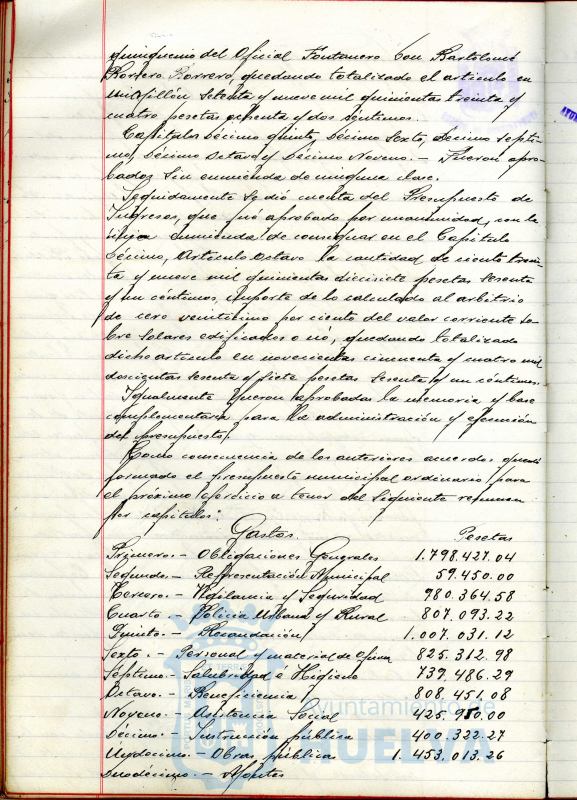 quinquenio del Oficial Fontanero Don Bartolomé
Romero Borrero, quedando totalizado el artículo en
un millón setenta y nueve mil quinientas treinta y
cuatro pesetas ochenta y dos céntimos.
Capítulos Décimo quinto, Décimo Sexto, Décimo Septi-
mo, Décimo Octavo y Décimo Noveno.- Fueron apro-
bados sin enmienda de ninguna clase.
Seguidamente se dió cuenta del Presupuesto de
Ingresos, que fué aprobado por unanimidad, con la
única enmienda de consignar en el Capítulo
Décimo, Artículo Octavo la cantidad de ciento trein-
ta y nueve mil quinientas diecisiete pesetas sesenta
y un céntimos, importe de lo calculado al arbitrio
de cero veinticinco por ciento del valor corriente so-
bre Solares edificados o nó, quedando totalizado
dicho artículo en novecientas cincuenta y cuatro mil
doscientas sesenta y siete pesetas sesenta y un céntimos.
Igualmente fueron aprobadas la memoria y bases
complementaria para la administración y ejecución
del presupuesto.
Como consecuencia de los anteriores acuerdos quedó
formado el presupuesto municipal ordinario para
el próximo ejercicio a tenor del siguiente resumen
por capítulos:
Gastos. Pesetas
Primero.- Obligaciones Generales 1.798.427.04
Segundo.- Representación Municipal 59.450.00
Tercero.- Vigilancia y Seguridad 980.364.58
Cuarto.- Policía Urbana y Rural 807.093.22
Quinto.- Recaudación 1.007.031.12
Sexto.- Personal y material de Oficina 825.312.98
Séptimo.- Salubridad e Higiene 739.486.29
Octavo.- Beneficiencia 808.451.08
Noveno.- Asistencia Social 425.950.00
Décimo.- Instrucción pública 400.322.27
Undécimo.- Obras públicas 1.453.013.26
Duodécimo.- Montes
Ayuntamiento de
HUELVA